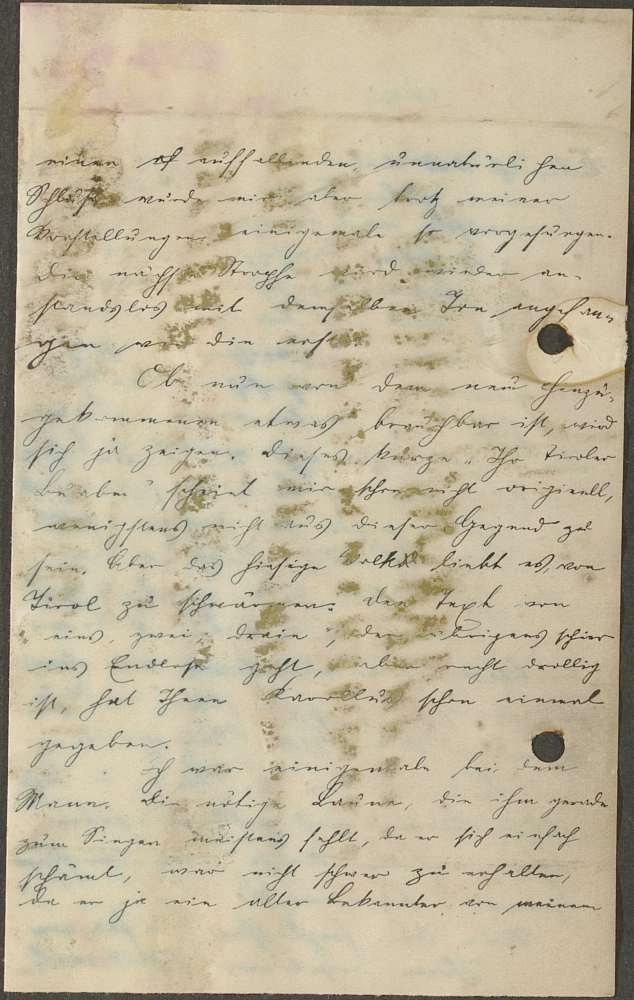 einen auffallenden, unnatürlichen
Schluß wurde mir aber trotz meiner
Vorstellungen einigemale so vorgesungen.
Die nächste Strophe wird wieder an-
standslos mit demselben Ton angefan-
gen wie die erste.
Ob nun von dem neu hinzu-
gekommenen etwas brauchbar ist, wird
sich ja zeigen. Dieses kurze „Ihr Tiroler
Buaben" scheint mir schon nicht originell,
wenigstens nicht aus dieser Gegend zu
sein. Aber das hiesige Volk liebt es, von
Tirol zu schwärmen. Den Text von
„eins, zwei, draie", der übrigens schier
ins Endlose geht, aber recht drollig
ist, hat Ihnen schon einmal
gegeben.
Ich war einigemale bei dem
Mann. Die nötige Laune, die ihm gerade
zum Singen meistens fehlt, da er sich einfach
schämt, war nicht schwer zu erhalten,
da er ja ein alter Bekannter von meinem